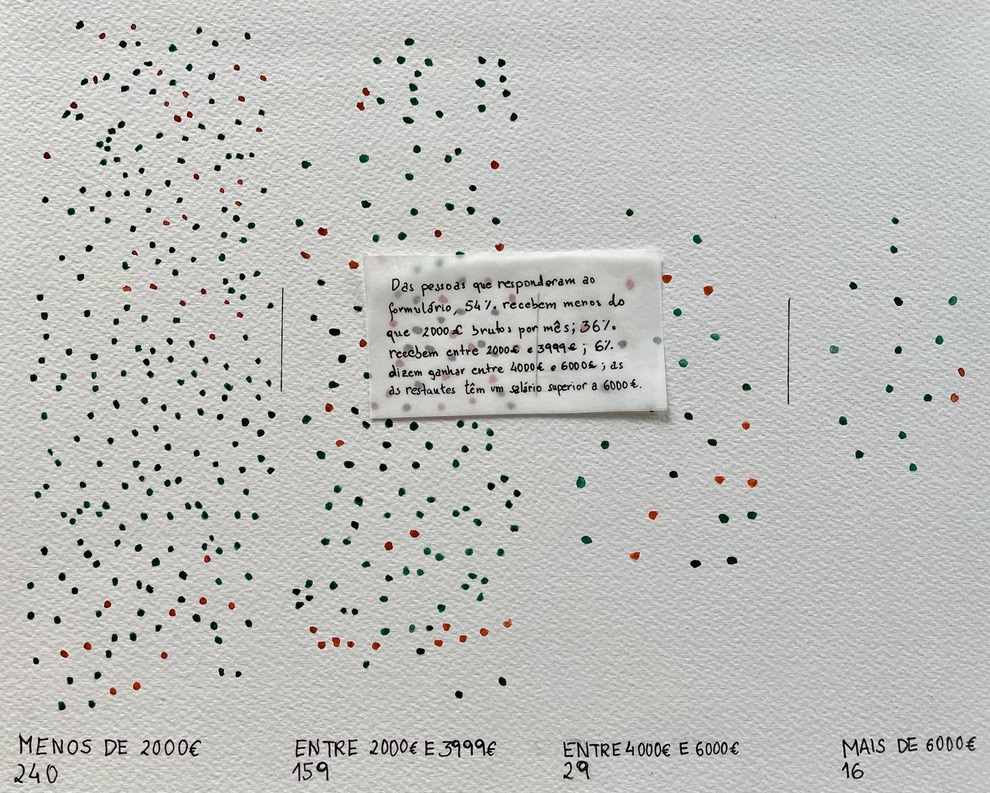 Das pessoas que responderam ao
formulário, 54%. recebem menos do
que 2000€ brutos por mês; 36%.
recebem entre 2000€ e 3999€; 6%.
dizem ganhar entre 4000€ e 6000€; as
as restantes têm um salário superior a 6000€.
MENOS DE 2000€
240
ENTRE 2000€ E 3999€
159
ENTRE 4000€ E 6000€
29
MAIS DE 6000€
16